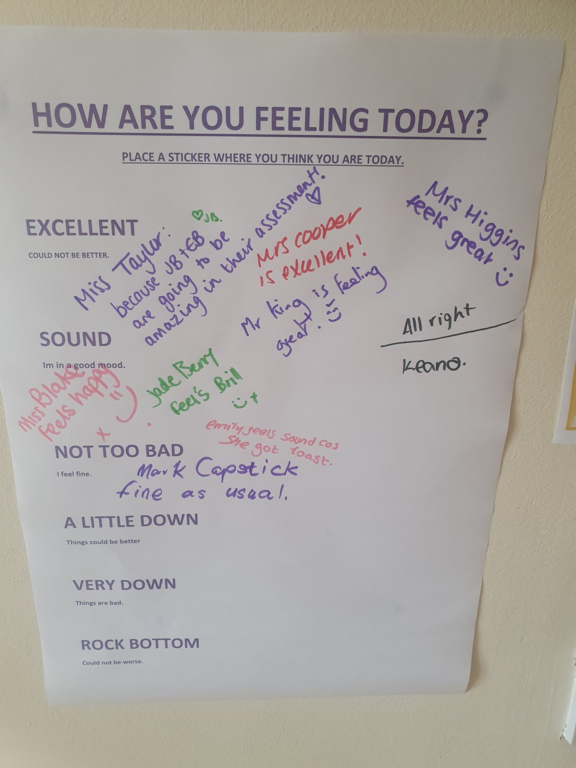 HOW ARE YOU FEELING TODAY?
PLACE A STICKER WHERE YOU THINK YOU ARE TODAY.
EXCELLENT
COULD NOT BE BETTER.
Miss Taylor:
because JB+EB
are going to be
amazing in their assessment!
♡JB.
Mrs cooper
is excellent!
Mrs Higgins
feels great
SOUND
Im in a good mood.
Mr King is feeling
great!
All right
Keano.
Miss Blake
feels happy
x
Jade Berry
feel's Brill
emily feels sound cos
She got toast.
NOT TOO BAD
I feel fine.
Mark Capstick
fine as usual.
A LITTLE DOWN
Things could be better
VERY DOWN
Things are bad.
ROCK BOTTOM
Could not be worse.